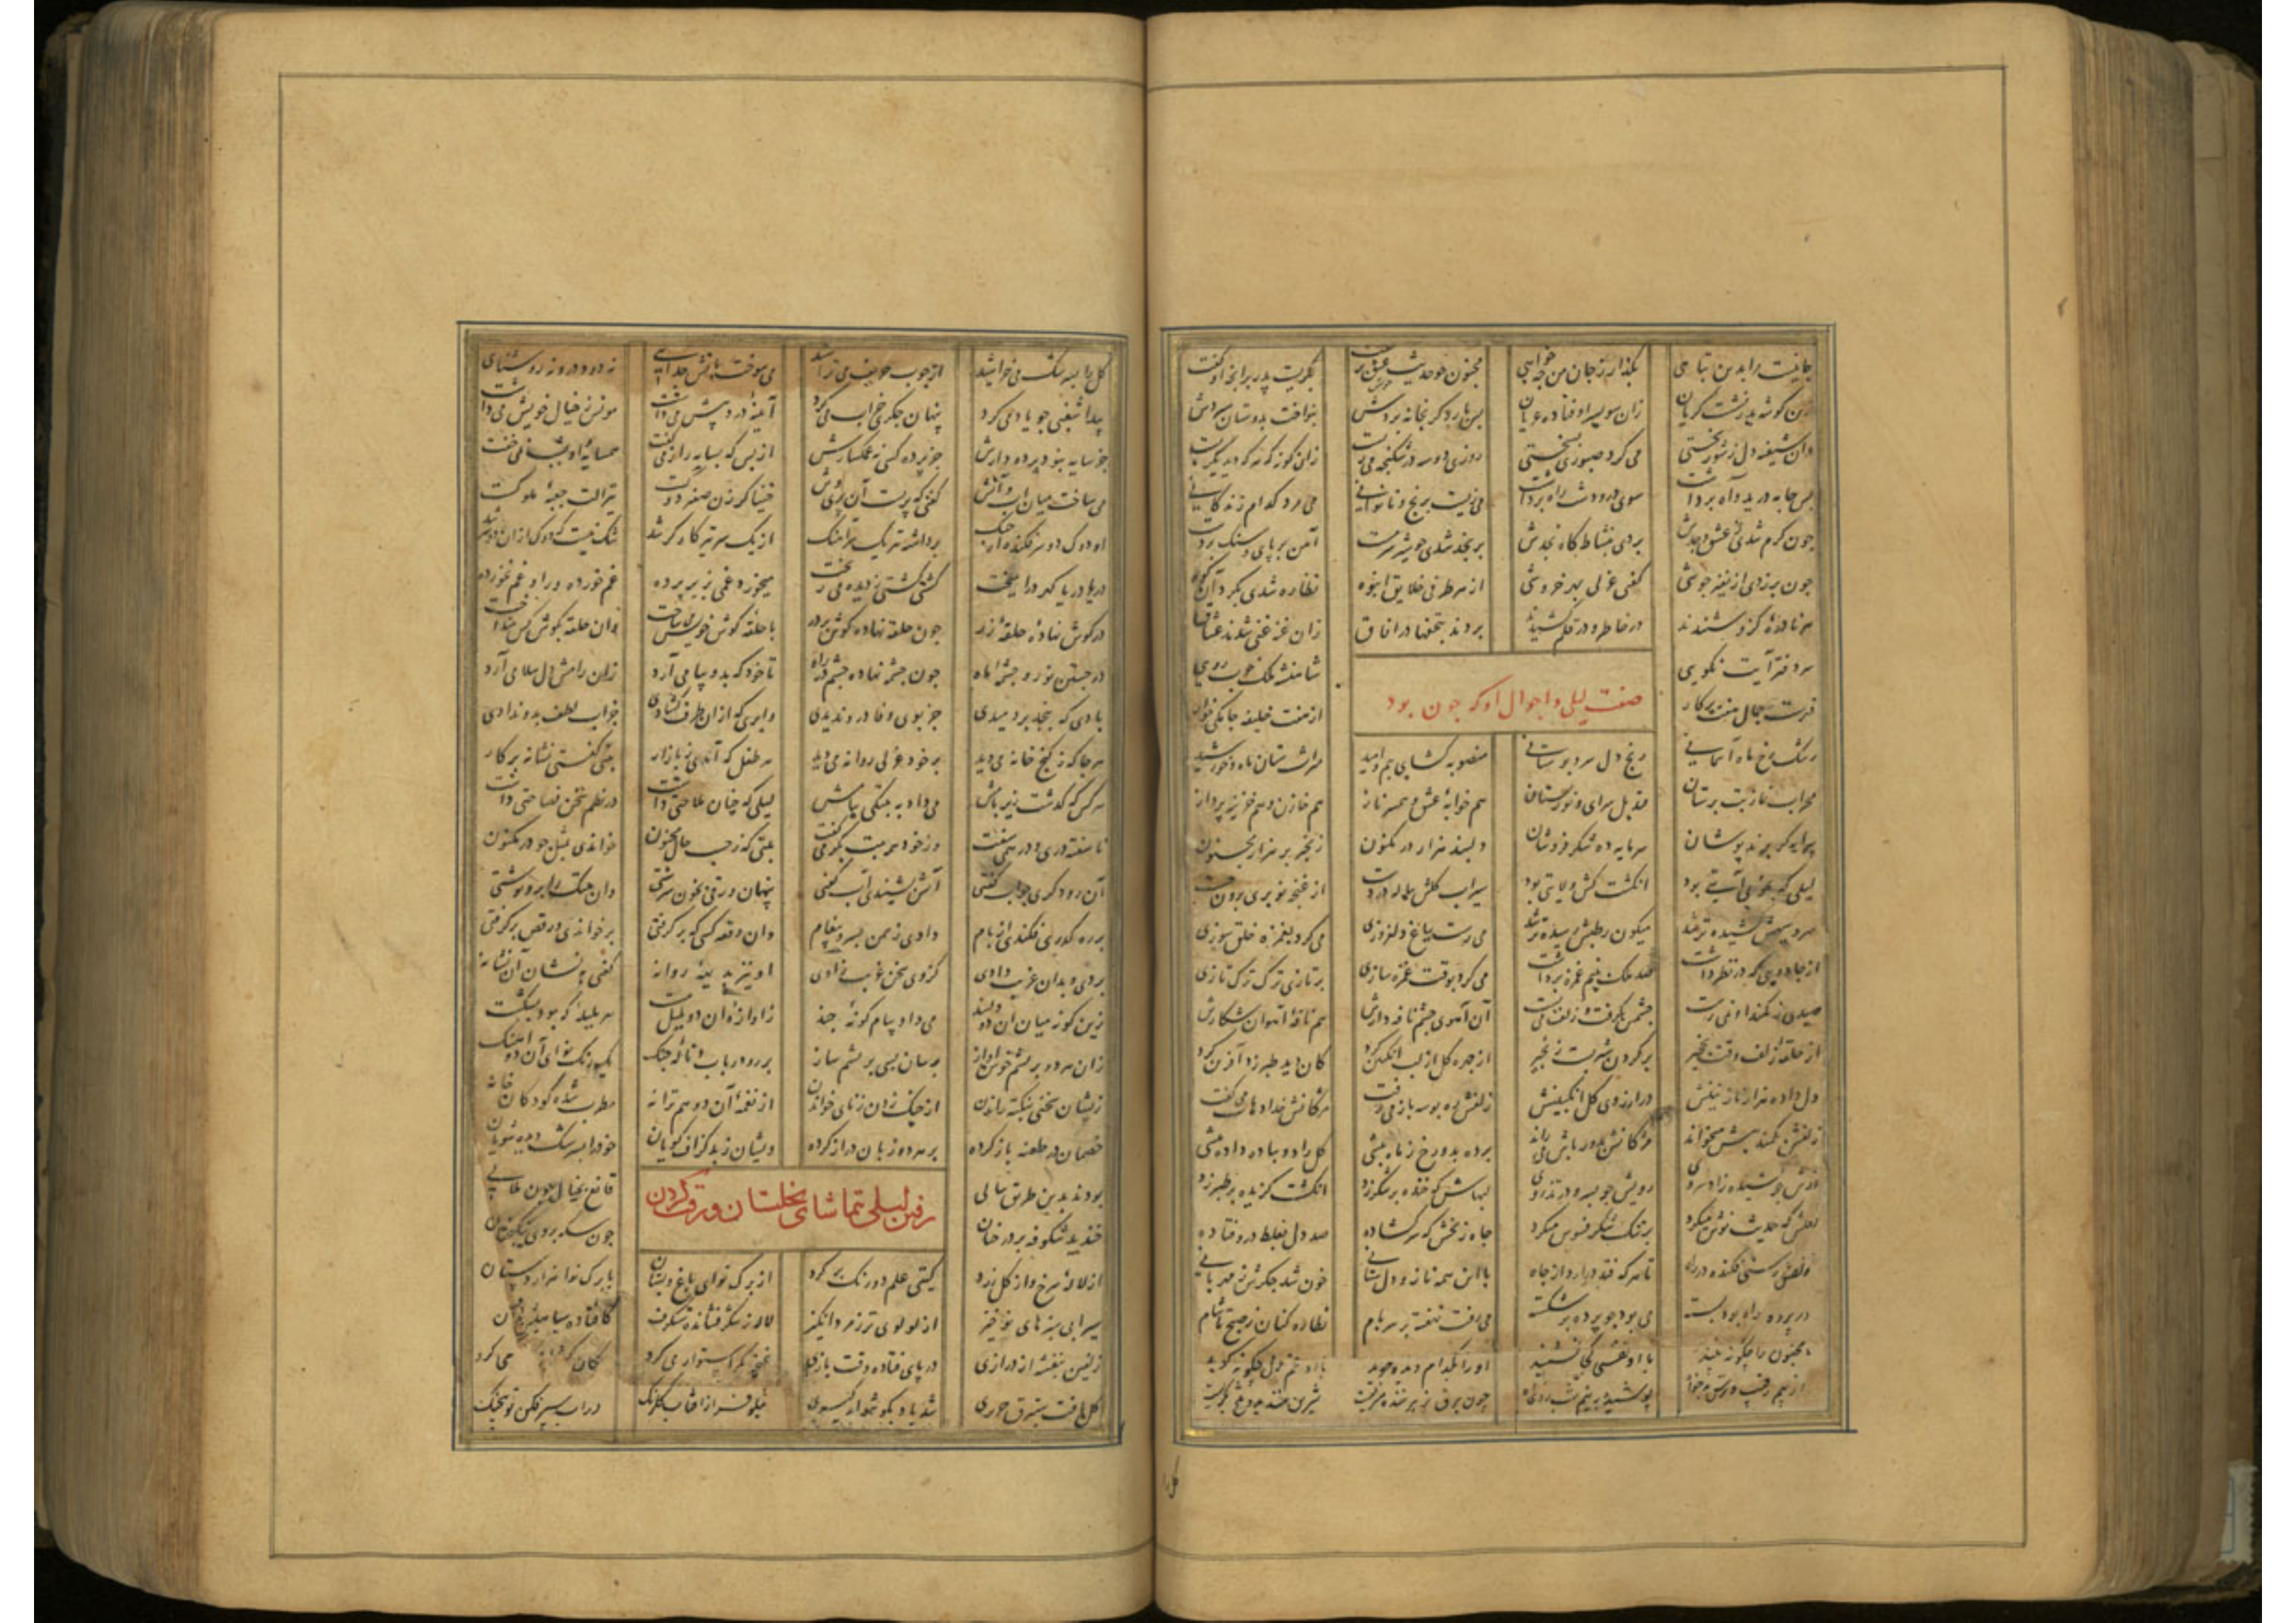 جانیست مرا بدین تباهی بگذار ز جان من چه خواهی مجنون چو حدیث عشق بر گفت بگریست پدر برانچه او گفت
زین گوشه پدر نشست گریان زان سو پسر اوفتاده عریان پس بار دگر بخانه بردش بنواخت بدوستان سپردش
وان شیفته دل ز شور بختی می کرد صبوری بسختی روزی دو سه در شکنجه می زیست زان گونه که هر که دید بگریست
پس جامه درید و آه برداشت سوی در و دشت راه برداشت می زیست برنج و ناتوانی می مرد کدام زندگانی
چون گرم شدی ز عشق وجدش بردی بنشاط گاه نجدش بر نجد شدی چو شیر سرمست آهن بر پای و سنک بر دست
چون برزدی از نفیر جوشی گفتی غزلی بهر خروشی از هر طرفی خلایق انبوه نظاره شدی بگرد آن کوه
هر نادره کزو شنیدند در خاطر و در قلم کشیدند بردند بتحفها در آفاق زان غنیه غنی شدند عشاق
سر دفتر آیت نکویی شاهنشه ملک خوب رویی
فهرست جمال هفت پرکار از هفت خلیفه جامگی خوار
صفت لیلی و احوال او که چون بود
رشک رخ ماه آسمانی رنج دل سرو بوستانی منصوبه گشای بیم و امید میراث ستان ماه و خورشید
محراب نماز بت پرستان قندیل سرای و نور بستان هم خوابه عشق و هم سر ناز هم خازن و هم خزینه پرداز
پیرایه گر پرند پوشان سرمایه ده شکر فروشان دلبند هزار در مکنون زنجیر بر هزار مجنون
لیلی که بخوبی آیتی بود انگشت کش ولایتی بود سیراب گلش پیاله در دست از غنچه نوبری برون جست
سرو سهیش کشیده تر شد میگون رطبش رسیده تر شد می رست بباغ دلفروزی می کرد بغمزه خلق سوزی
از جادویی که در نظر داشت صد ملک بنیم غمزه برداشت می کرد بوقت غمزه سازی بر تازی ترک ترک تازی
صیدی ز کمند او نمی رست چشمش بگرفت و زلف می بست آن آهوی چشم نافه دارش هم نافه آهوان شکارش
از حلقه زلف وقت نخجیر بر گردن شیر بست زنجیر از چهره گل از لب انگبین کرد کان دید طبرزد آفرین کرد
دل داده هزار نازنینش در آرزوی گل انگبینش زلفش ره بوسه باز می رفت مژگانش خدا دهاد می گفت
زلفش بکمند پیش میخواند مژگانش بدورباش می راند برده بدو رخ ز ماه بیشی گل را دو پیاده داده پیشی
قدش چو کشیده زاد سروی رویش چو بسرو بر تذروی لبهاش که خنده بر شکر زد انگشت گزیده بر طبرزد
لعلش که حدیث نوش میکرد بر تنگ شکر فسوس میکرد چاه زنخش که سر گشاده صد دل بغلط درو فتاده
زلفش رسنی فکنده در راه تا هر که فتد برآرد از چاه با این همه ناز و دل ستانی خون شد جگرش ز مهربانی
در پرده که راه بود بسته می بود چو پرده بر شکسته می رفت نهفته بر سر بام نظاره کنان ز صبح تا شام
مجنون را چگونه بیند با او نفسی کجا نشیند او را بکدام دیده جوید با او غم دل چگونه گوید
از بیم رقیب و ترس بدخواه پوشیده بنیم شب زدی آه چون برق خنده میزیست شیرین خندید و تلخ بگریست
گل را
گل را بسرشک می خراشید از چوب حریف می تراشید می سوخت بآتش جدایی نه دود درو نه روشنایی
پیدا شغبی چو باد می کرد پنهان جگری خراب می کرد آینه درد پیش می داشت مونس ز خیال خویش می داشت
جز سایه نبود پرده دارش جز پرده کسی نه غمگسارش از بس که بسایه راز می گفت همسایه او بشب نمی خفت
می ساخت میان آب و آتش گفتی که پریست آن پری وش خنیاگر زن صفیر دوکست تیر آلت جعبه ملوکست
او دوک دو سر فکنده از چنگ برداشته تیر یک سر آهنگ از یک سر تیر کارگر شد شک نیست که دوک ازان دو سر شد
دریا دریا گهر درآمیخت کشتی کشتی ز دیده می ریخت میخورد غمی بزیر پرده غم خورده ورا و غم نخورده
در گوش نهاده حلقه زر چون حلقه نهاده گوش بر در با حلقه گوش خویش می ساخت وان حلقه بگوش کس نینداخت
در جستن نور چشمه ماه چون چشمه نهاده چشم در راه تا خود که بدو پیامی آرد زان رامش دل سلامی آرد
بادی که ز نجد بردمیدی جز بوی وفا درو ندیدی وابری که ازان طرف گشادی جز آب لطف بدو ندادی
هر جا که ز کنج خانه می دید بر خود غزلی روانه می دید هر طفل که آمدی ز بازار بیتی گفتی نشانه بر کار
هر کس که گذشت زیر بامش می داد به بیتکی پیامش لیلی که چنان ملاحتی داشت در نظم سخن فصاحتی داشت
ناسفته دری و در همی سفت وز خود همه بیت بکر می گفت بیتی که ز حسب حال مجنون خواندی بمثل چو در مکنون
آن را دگری جواب گفتی آتش بشنیدی آب گفتی پنهان ورقی بخون سرشتی وان بیتک را برو نوشتی
بر ره گذری فکندی از بام دادی ز سمن بسرو پیغام وان رقعه کسی که بر گرفتی بر خواندی و رقص بر گرفتی
بردی و بدان غریب دادی کز وی سخن غریب زادی او نیز بدیهه روانه گفتی بنشان آن نشانه
زین گونه میان آن دو دلبند می داد پیام گونه چند زاوازه آن دو بلبل مست هر بلبله که بود بشکست
زان هر دو بریشم خوش آواز بر ساز بسی بریشم ساز بر رود رباب و ناله چنگ یک رنگ نوای آن دو آهنگ
زیشان سخنی بنکته راندن از چنگ زدن ز نای خواندن از نغمه آن دو هم ترانه مطرب شده کودکان خانه
خصمان در طعنه باز کرده بر هر دو زبان دراز کرده ویشان ز بد گزاف گویان خود را بسرشک دیده شویان
بودند بدین طریق سالی قانع بخیال چون
رفتن لیلی بتماشای نخلستان
خندید شکوفه بر درختان چون سکه روی نیکبختان
از لاله سرخ و از گل زرد گیتی علم دو رنگ بر کرد از برگ نوای باغ و بستان با برگ نوا هزار دستان
سیرابی سبزهای نوخیز از لولوی تر زمرد انگیز لاله ز شکر فشانده شنگرف کافتاده سیاهیش
زلفین بنفشه از درازی در پای فتاده وقت بازی غنچه کمر استوار می کرد می کرد
گل یافت ستبرق حریری شد باد بگوشوار گیری نیلوفر از آفتاب گلرنگ در آب سپر فکن